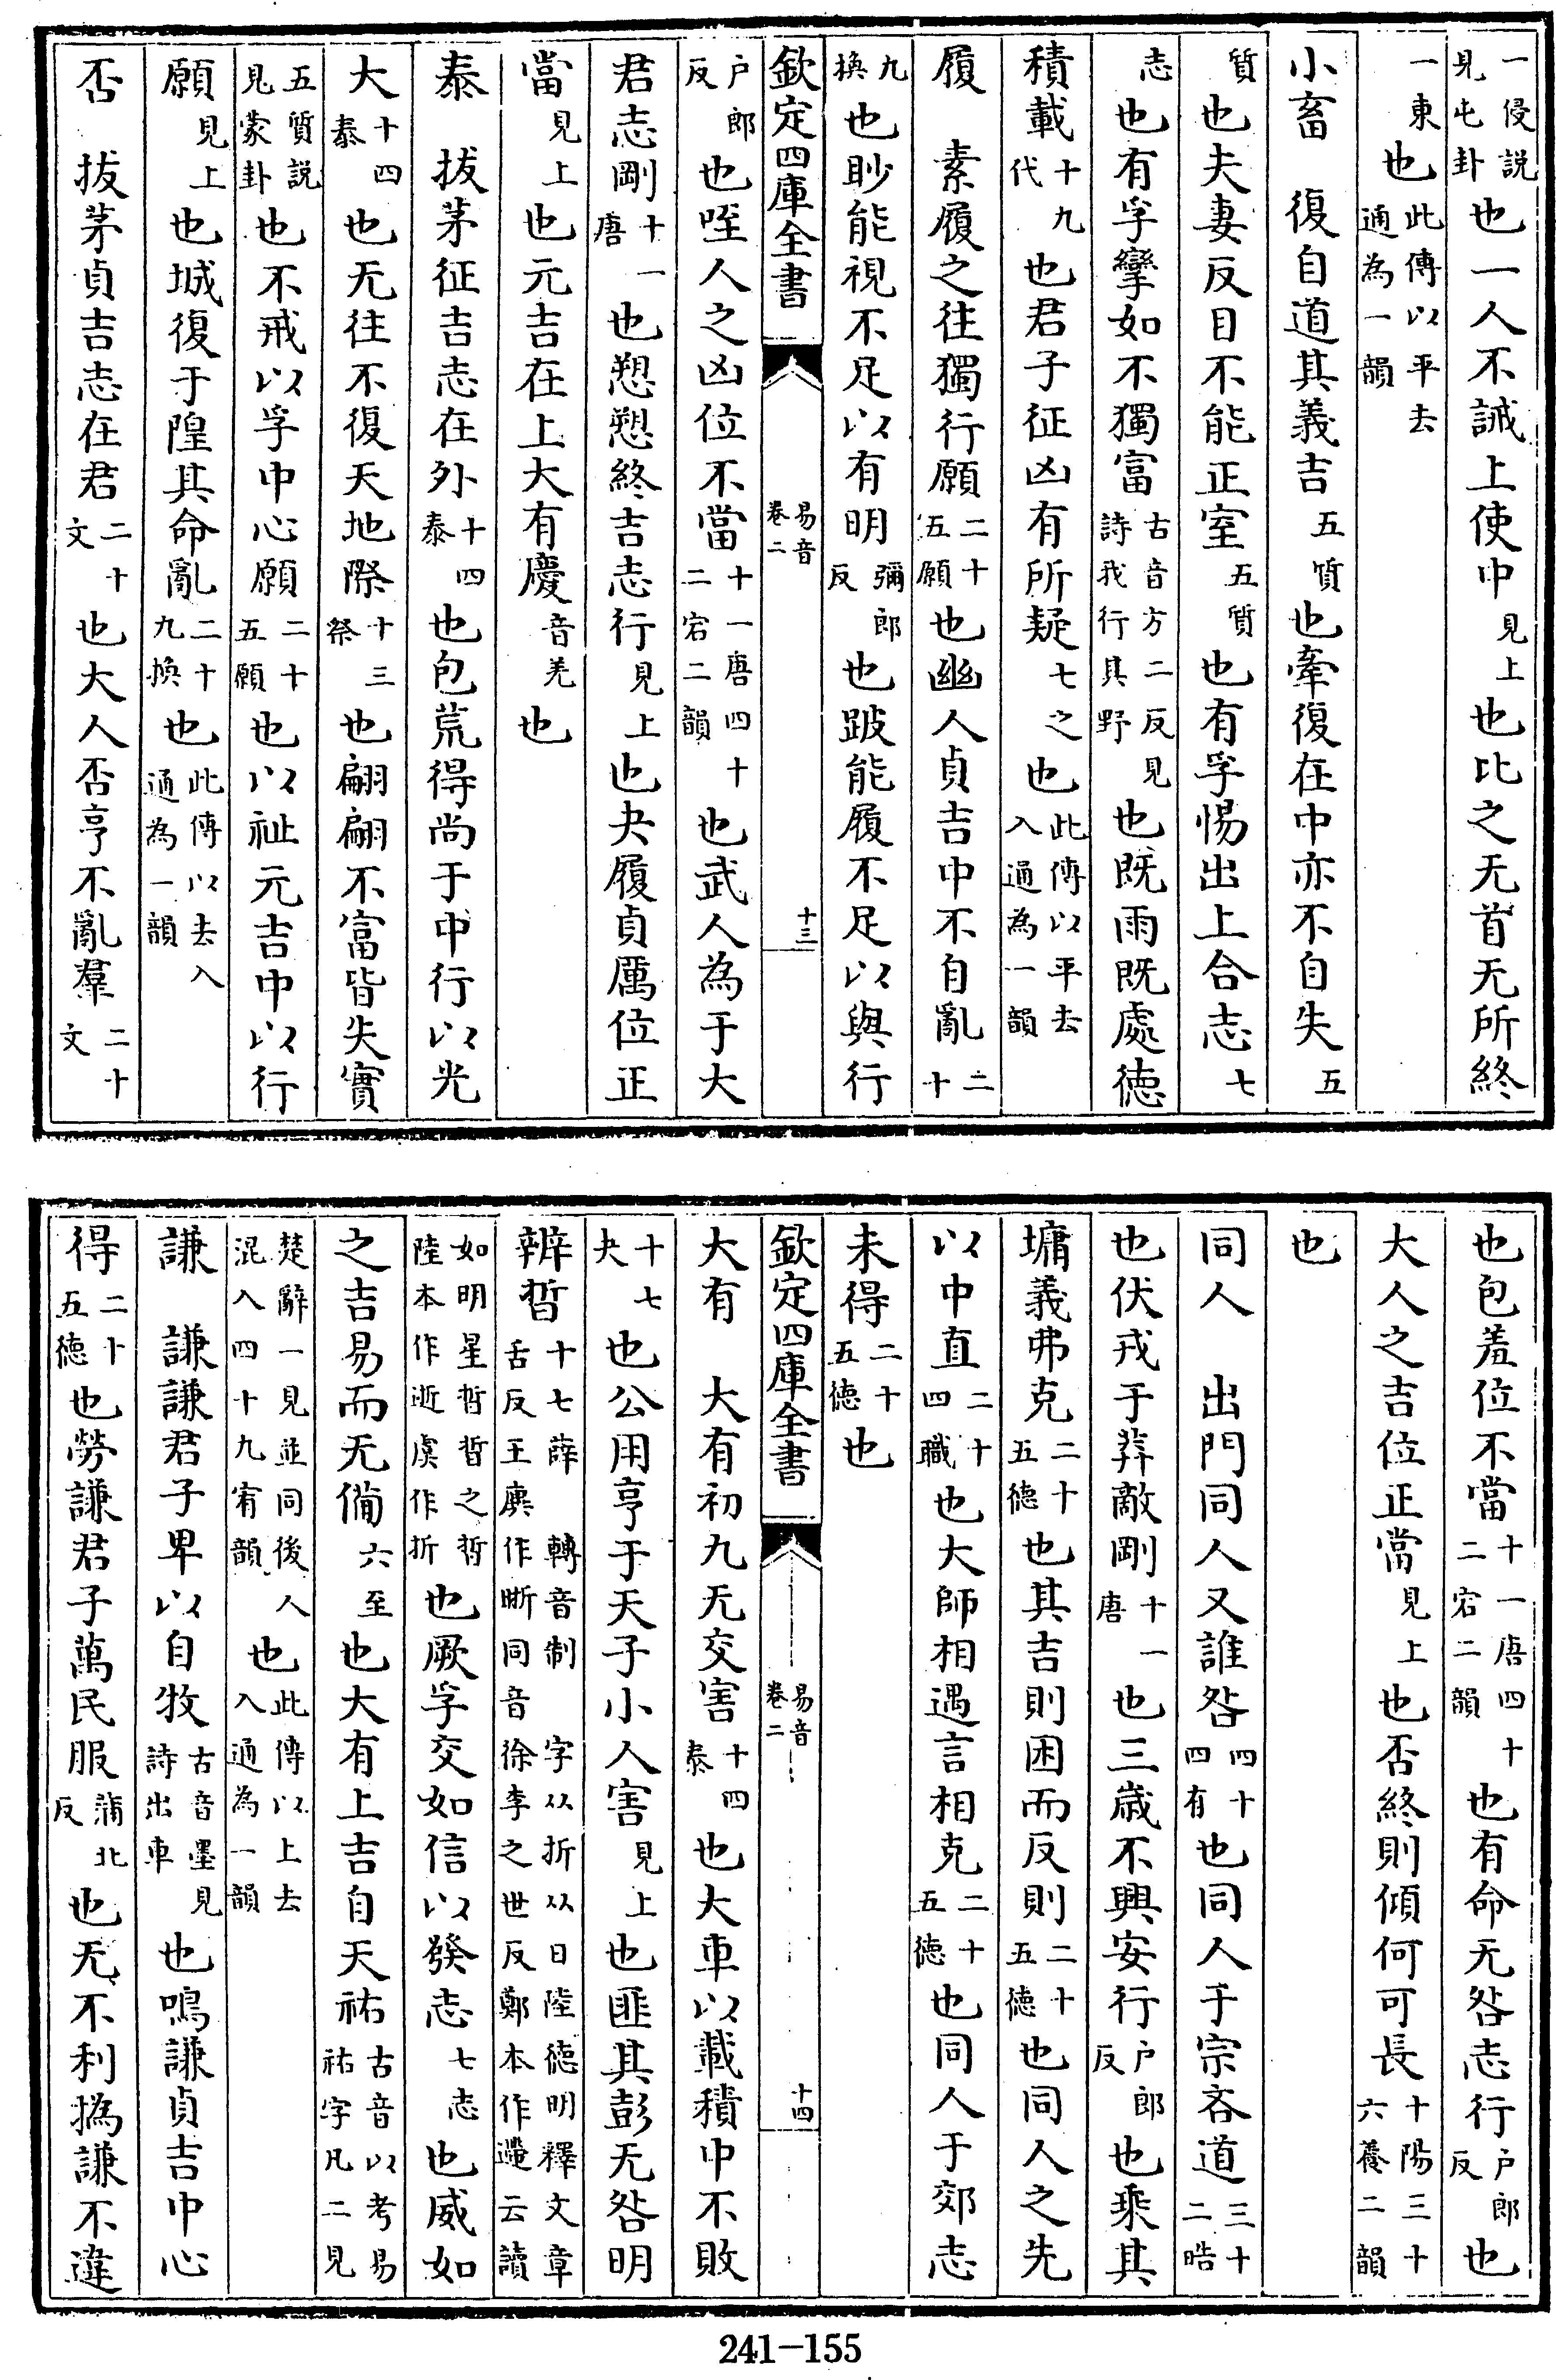 一侵説見屯卦也一人不誡上使中見上也比之无首无所終
一東也此傳以平去通為一韻
小畜　復自道其義吉五質也牽復在中亦不自失五
質也夫妻反目不能正室五質也有孚惕出上合志七
志也有孚攣如不獨富古音方二反見詩我行其野也既雨既處徳
積載十九代也君子征凶有所疑七之也此傳以平去入通為一韻
履　素履之往獨行願二十五願也幽人貞吉中不自亂二十
九換也眇能視不足以有明彌郎反也跛能履不足以與行
欽定四庫全書　易音卷二　十三
户郎反也咥人之凶位不當十一唐四十二宕二韻也武人為于大
君志剛十一唐也愬愬終吉志行見上也夬履貞厲位正
當見上也元吉在上大有慶音羌也
泰　拔茅征吉志在外十四泰也包荒得尚于中行以光
大十四泰也无往不復天地際十三祭也翩翩不富皆失實
五質説見蒙卦也不戒以孚中心願二十五願也以祉元吉中以行
願見上也城復于隍其命亂二十九換也此傳以去入通為一韻
否　拔茅貞吉志在君二十文也大人否亨不亂羣二十文
也包羞位不當十一唐四十二宕二韻也有命无咎志行户郎反也
大人之吉位正當見上也否終則傾何可長十陽三十六養二韻
也
同人　出門同人又誰咎四十四有也同人于宗吝道三十二晧
也伏戎于莽敵剛十一唐也三歲不興安行户郎反也乘其
墉義弗克二十五徳也其吉則困而反則二十五徳也同人之先
以中直二十四職也大師相遇言相克二十五徳也同人于郊志
未得二十五徳也
欽定四庫全書　易音卷二　十四
大有　大有初九无交害十四泰也大車以載積中不敗
十七夬也公用亨于天子小人害見上也匪其彭无咎明
辨晢十七薛　轉音制　字从折从日陸徳明釋文章舌反王廙作晣同音徐李之世反鄭本作遰云讀
如明星晢晢之晢陸本作逝虞作折也厥孚交如信以發志七志也威如
之吉易而无備六至也大有上吉自天祐古音以考易祐字凡二見
楚辭一見並同後人混入四十九宥韻也此傳以上去入通為一韻
謙　謙謙君子卑以自牧古音墨見詩出車也鳴謙貞吉中心
得二十五徳也勞謙君子萬民服蒲北反也无不利撝謙不違
241-155